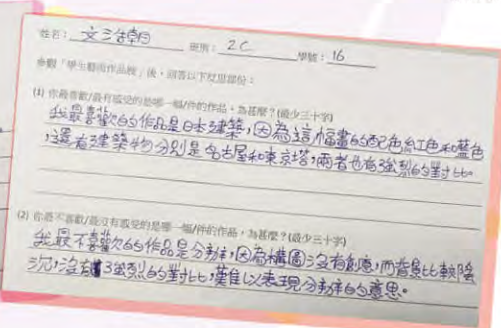 姓名：文浩朗 班別：2C 學號：16
參觀「學生藝術作品展」後，回答以下反思部份：
(1) 你最喜歡/最有感受的是哪一幅/件的作品，為甚麼？(最少三十字)
我最喜歡的作品是日本建築，因為這幅畫的配色紅色和藍色
，還有建築物分別是名古屋和東京塔，兩者也有強烈的對比。
(2) 你最不喜歡/最沒有感受的是哪一幅/件的作品，為甚麼？(最少三十字)
我最不喜歡的作品是分離，因為構圖沒有創意，而背景比較陰
沉，沒有強烈的對比，難以表現分離的意思。